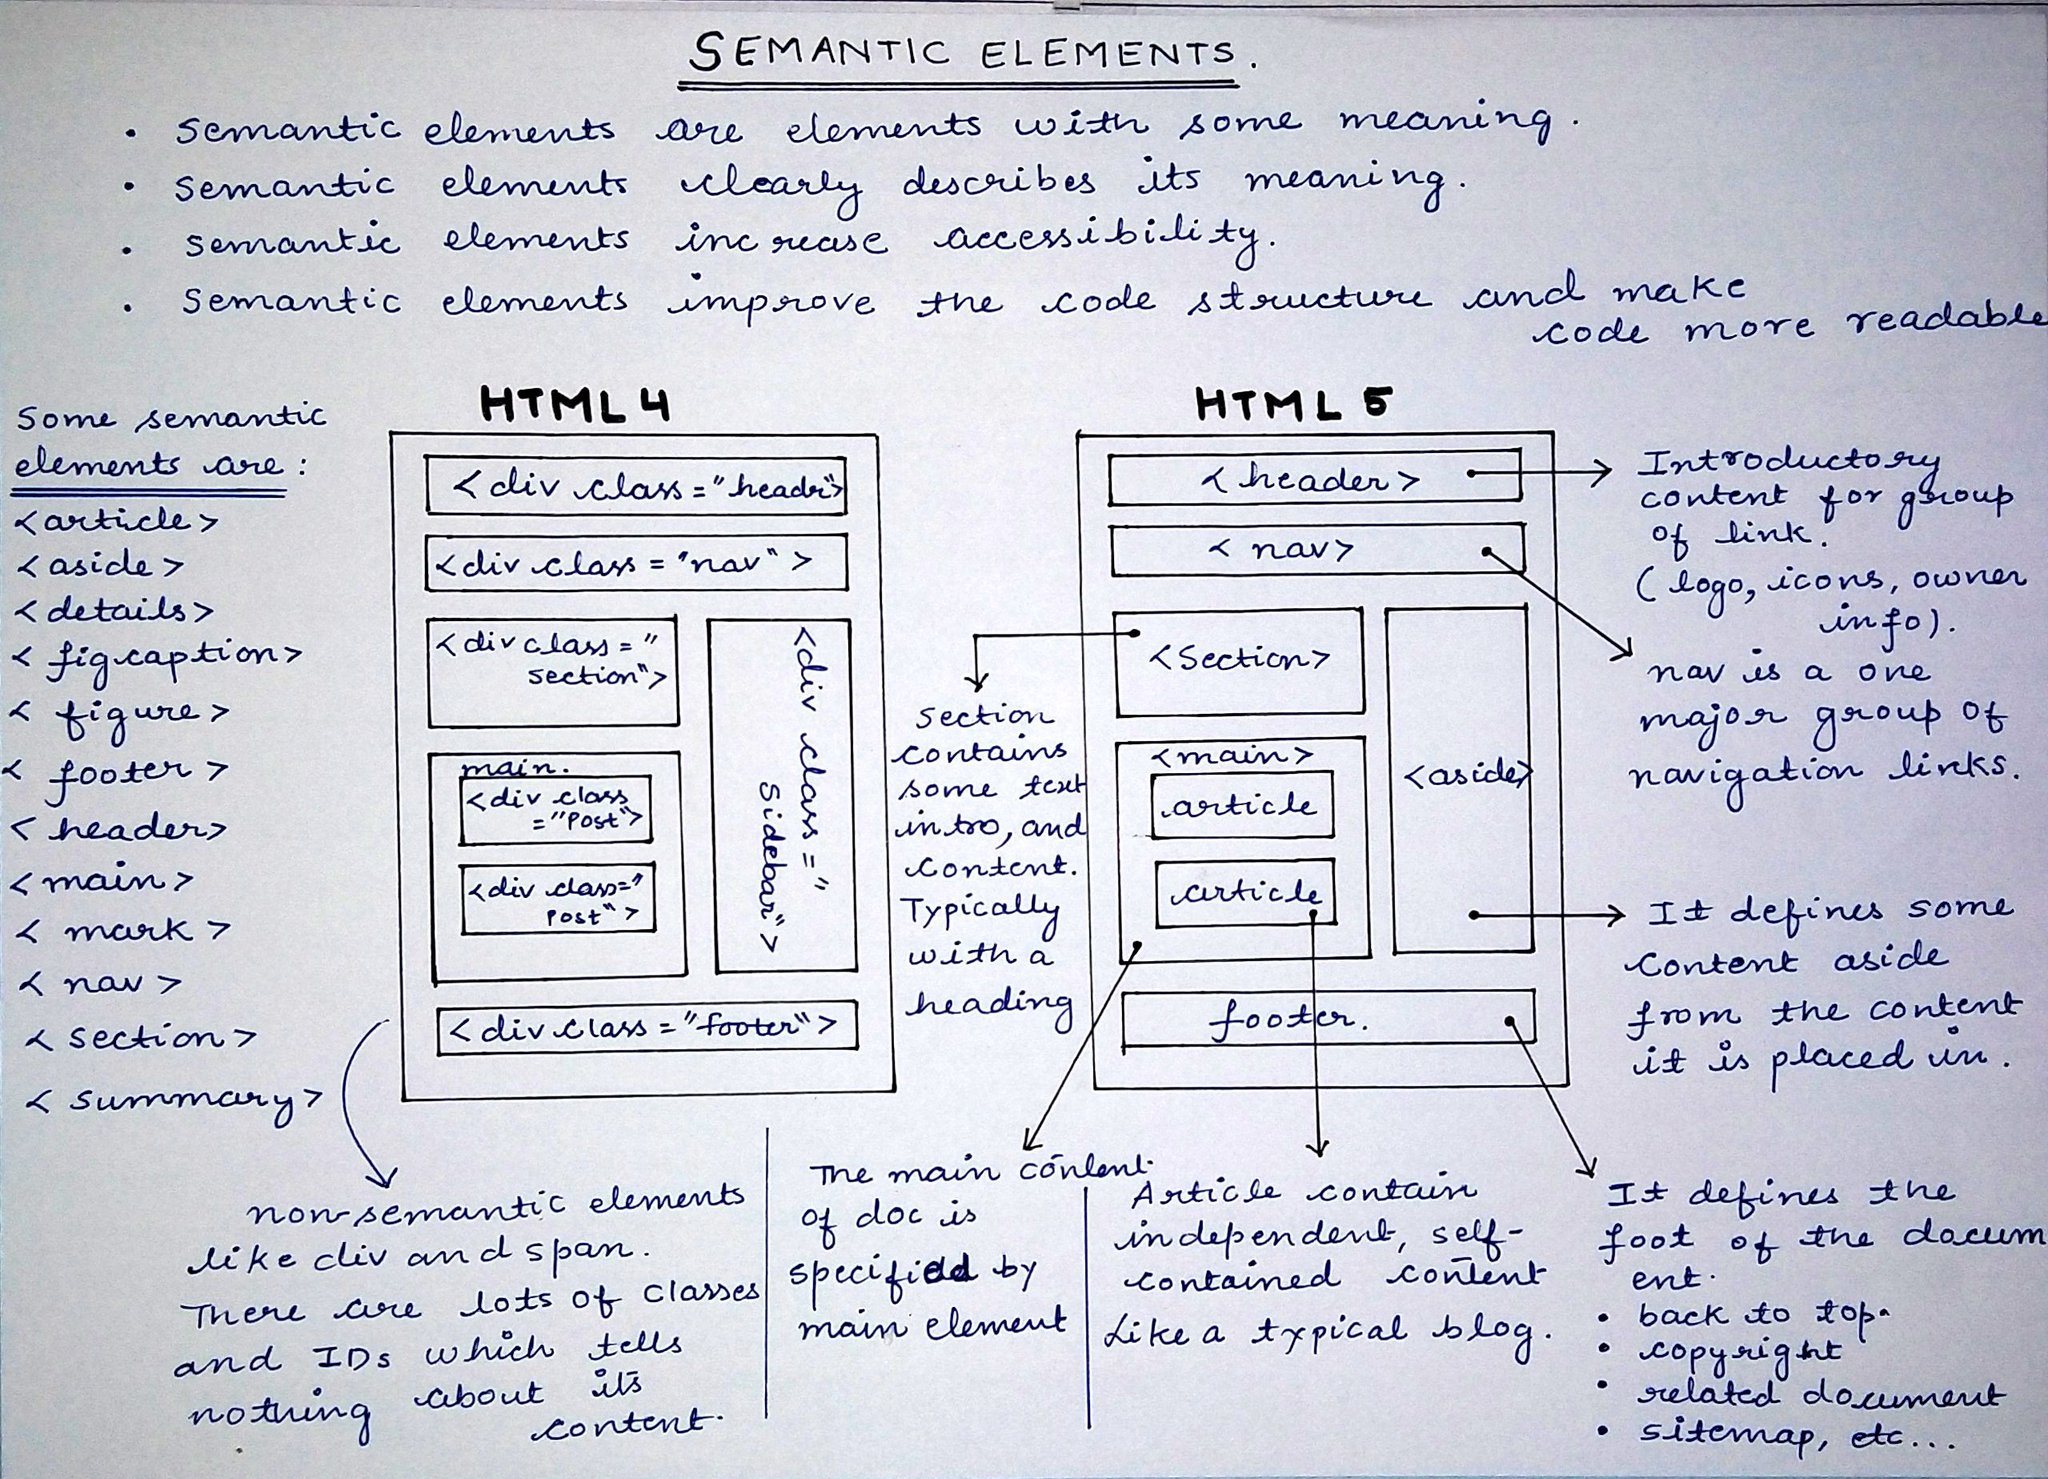 SEMANTIC ELEMENTS.
• Semantic elements are elements with some meaning.
• Semantic elements clearly describes its meaning.
• Semantic elements increase accessibility.
• Semantic elements improve the code structure and make
code more readable
Some semantic
elements are :
<article>
<aside>
<details>
<figcaption>
<figure>
<footer>
<header>
<main>
<mark>
<nav>
<section>
<summary>
HTML 4
<div class="header">
<div class="nav">
<div class="
section">
<div class="
Sidebar">
main.
<div class
="Post">
<div class="
Post">
<div class="footer">
non-semantic elements
like div and span.
There are lots of classes
and IDs which tells
nothing about its
content.
HTML 5
<header>
<nav>
<Section>
<aside>
<main>
article
article
footer.
Section
contains
some text
intro, and
content.
Typically
with a
heading
Introductory
content for group
of link.
(logo, icons, owner
info).
nav is a one
major group of
navigation links.
It defines some
content aside
from the content
it is placed in.
The main content
of doc is
specified by
main element
Article contain
independent, self-
contained content
Like a typical blog.
It defines the
foot of the docum
ent.
• back to top.
• copyright
• related document
• sitemap, etc...